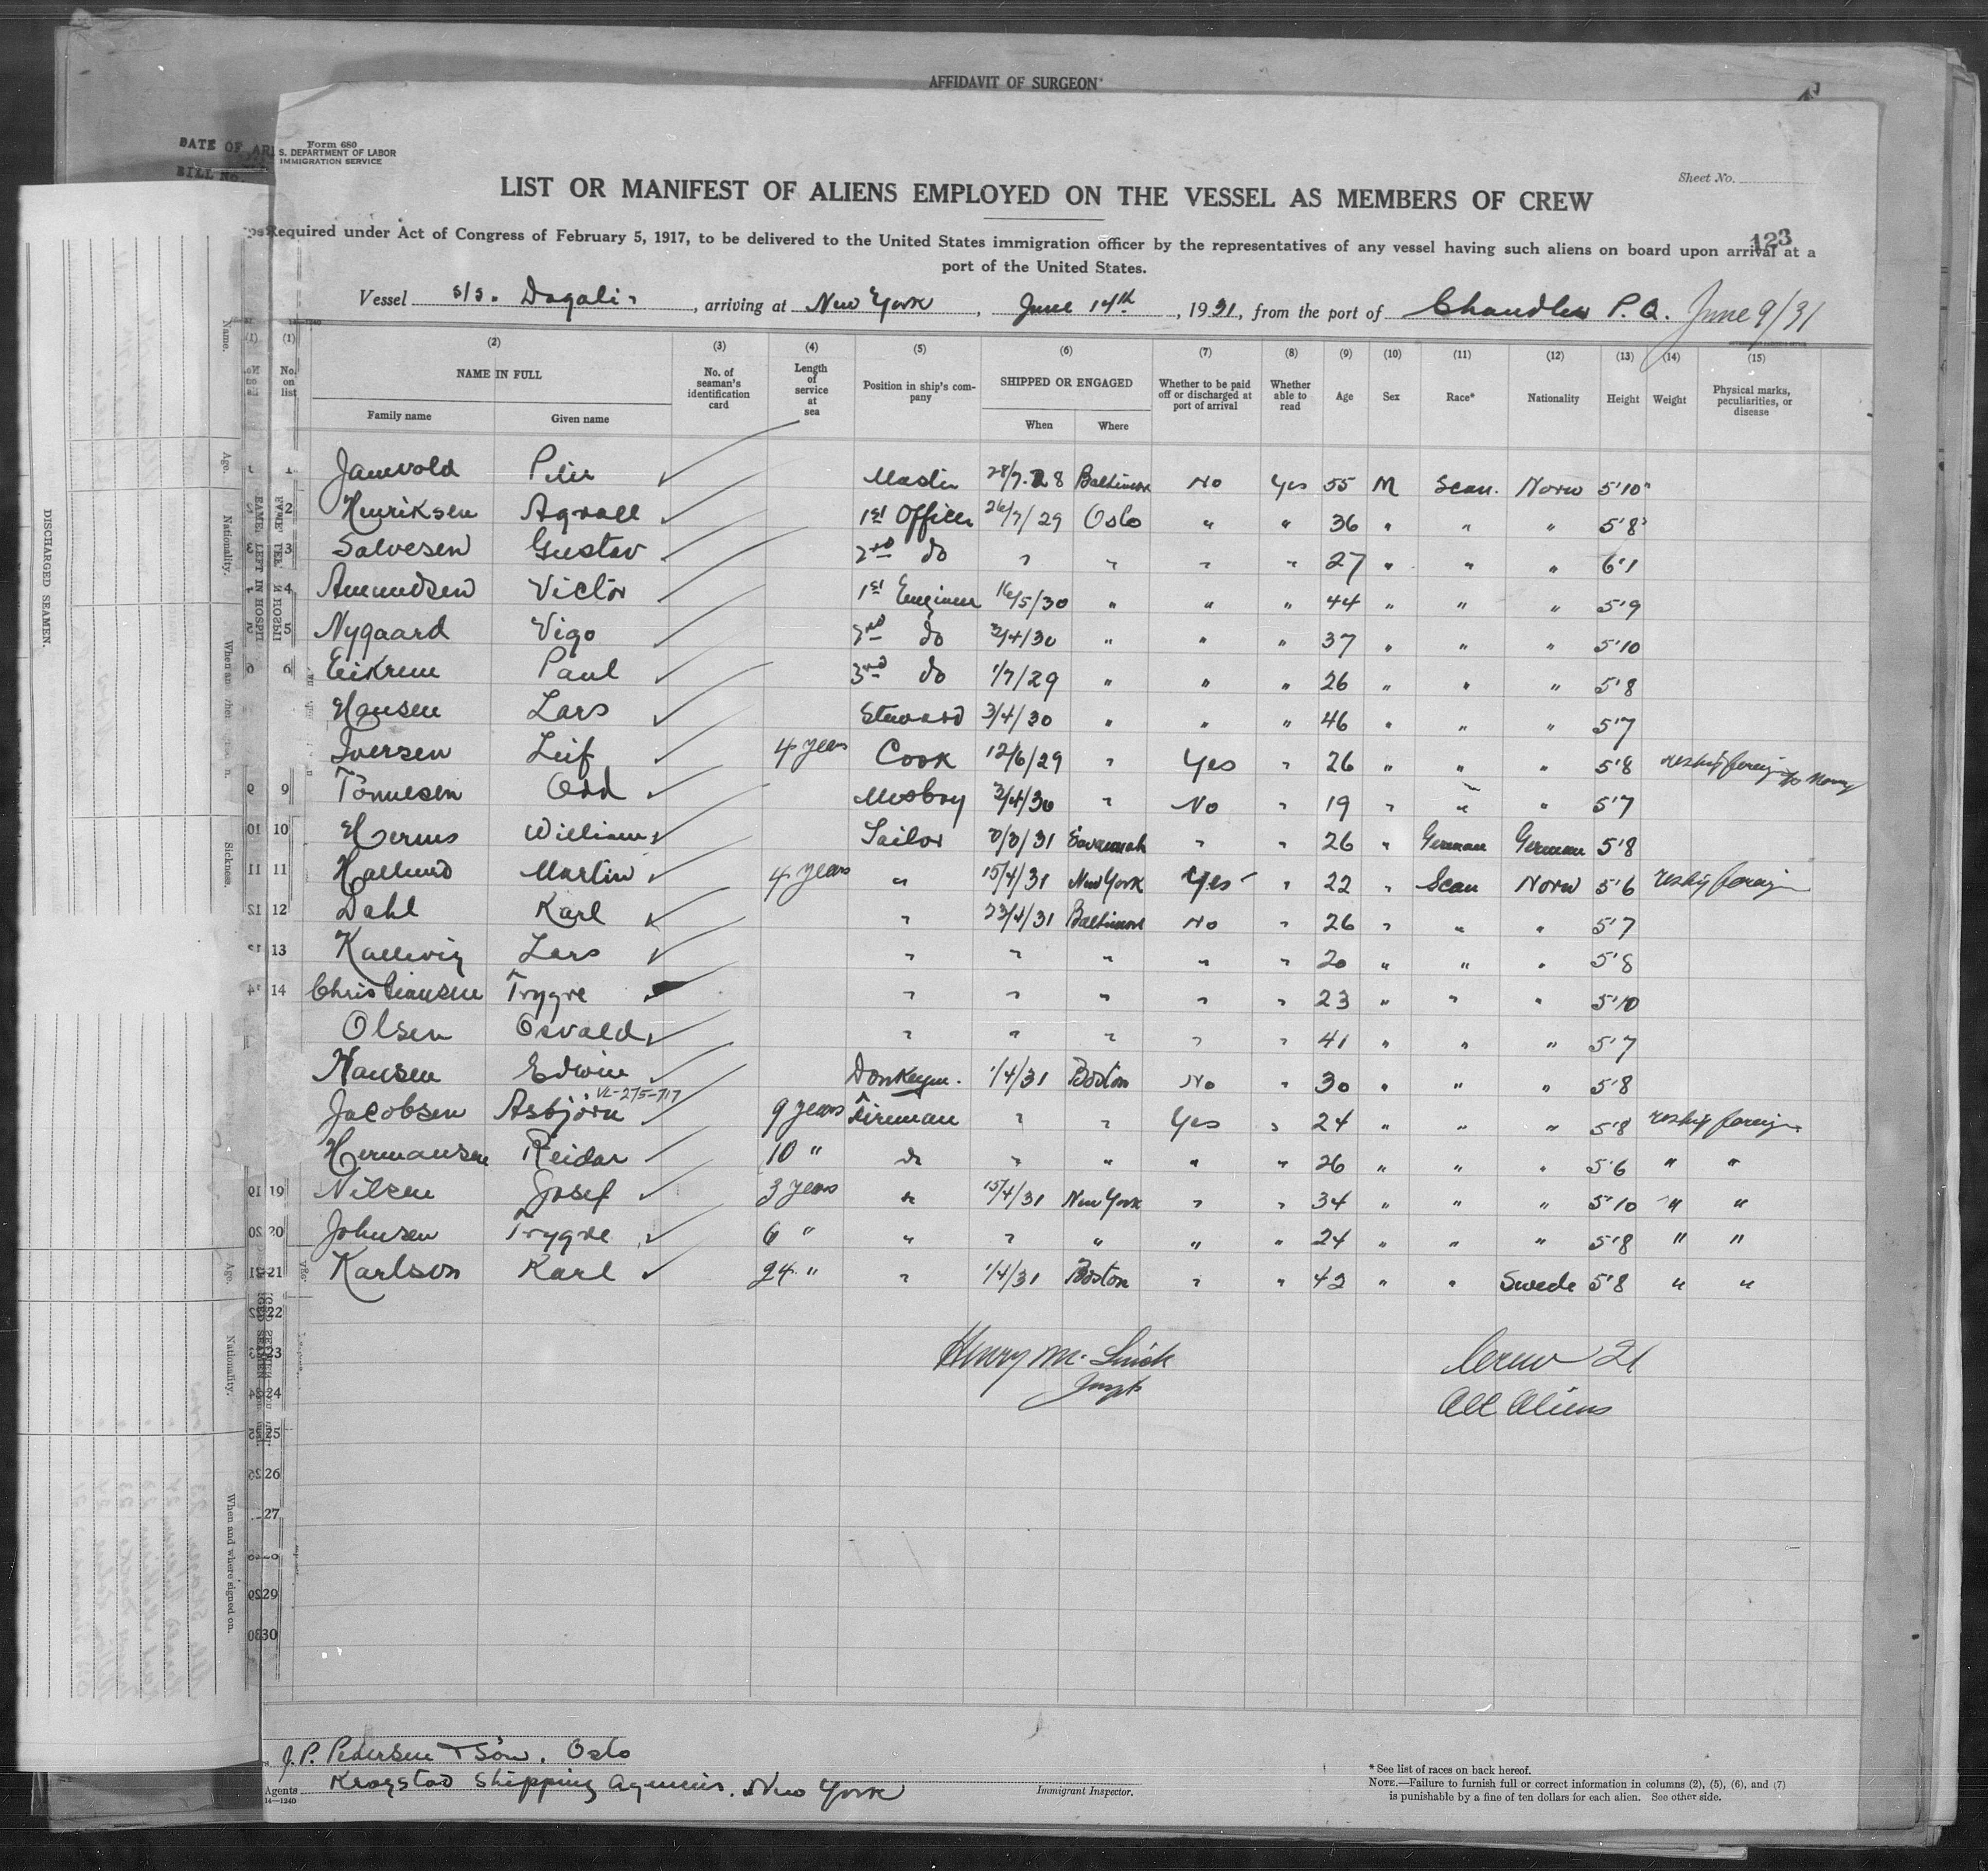 AFFIDAVIT OF SURGEON
DATE OF
BILL No.
Form 680
S. DEPARTMENT OF LABOR
IMMIGRATION SERVICE
Sheet No.
LIST OR MANIFEST OF ALIENS EMPLOYED ON THE VESSEL AS MEMBERS OF CREW
123
Required under Act of Congress of February 5, 1917, to be delivered to the United States immigration officer by the representatives of any vessel having such aliens on board upon arrival at a
port of the United States.
Vessel s/s. Dagali, arriving at New York, June 14th, 1931, from the port of Chandler P.Q. June 9/31
(1) (2) (3) (4) (5) (6) (7) (8) (9) (10) (11) (12) (13) (14) (15)
No. on list NAME IN FULL Family name Given name No. of seaman's identification card Length of service at sea Position in ship's company SHIPPED OR ENGAGED When Where Whether to be paid off or discharged at port of arrival Whether able to read Age Sex Race* Nationality Height Weight Physical marks, peculiarities, or disease
1 Peter Master 28/7.28 Baltimore No Yes 55 M Scan. Norw 5'10"
2 Henriksen Agvall 1st Officer 26/7/29 Oslo " " 36 " " " 5'8"
3 Salvesen Gustav 2nd do " " " " 27 " " " 6'1
4 Amundsen Victor 1st Engineer 16/5/30 " " " 44 " " " 5'9
5 Nygaard Vigo 2nd do 3/4/30 " " " 37 " " " 5'10
6 Eikrem Paul 3rd do 1/7/29 " " " 26 " " " 5'8
Hansen Lars Steward 3/4/30 " " " 46 " " " 5'7
Iversen Leif 4 years Cook 12/6/29 " Yes " 26 " " " 5'8 reship foreign to Norway
9 Tönnesen Odd Messboy 3/4/30 " No " 19 " " " 5'7
10 Herms William Sailor 31 Savannah " " 26 " German German 5'8
11 Martin 4 years " 15/4/31 New York Yes " 22 " Scan Norw 5'6 reship foreign
12 Dahl Karl " 23/4/31 Baltimore No " 26 " " " 5'7
13 Kallevig Lars " " " " " 20 " " " 5'8
14 Christiansen Trygve " " " " " 23 " " " 5'10
Olsen Osvald " " " " " 41 " " " 5'7
Hansen Edwin Donkeym. 1/4/31 Boston No " 30 " " " 5'8
VL-275-717
Jacobsen Asbjörn 9 years Fireman " " Yes " 24 " " " 5'8 reship foreign
Hermansen Reidar 10 " do " " " " 26 " " " 5'6 " "
19 Nilsen Josef 3 years " 15/4/31 New York " " 34 " " " 5'10 " "
20 Johnsen Trygve 6 " " " " " " 24 " " " 5'8 " "
21 Karlson Karl 24 " " 1/4/31 Boston " " 42 " " Swede 5'8 " "
22
23
24
25
26
27
29
30
Henry M.
Crew 21
All Aliens
J.P. Pedersen & Sön. Oslo
Agents Krogstad Shipping Agencies. New York
14—1240
Immigrant Inspector.
* See list of races on back hereof.
NOTE.—Failure to furnish full or correct information in columns (2), (5), (6), and (7)
is punishable by a fine of ten dollars for each alien. See other side.
DISCHARGED SEAMEN.
Name.
Age.
Nationality.
Sickness.
Age.
Nationality.
When and where signed on.